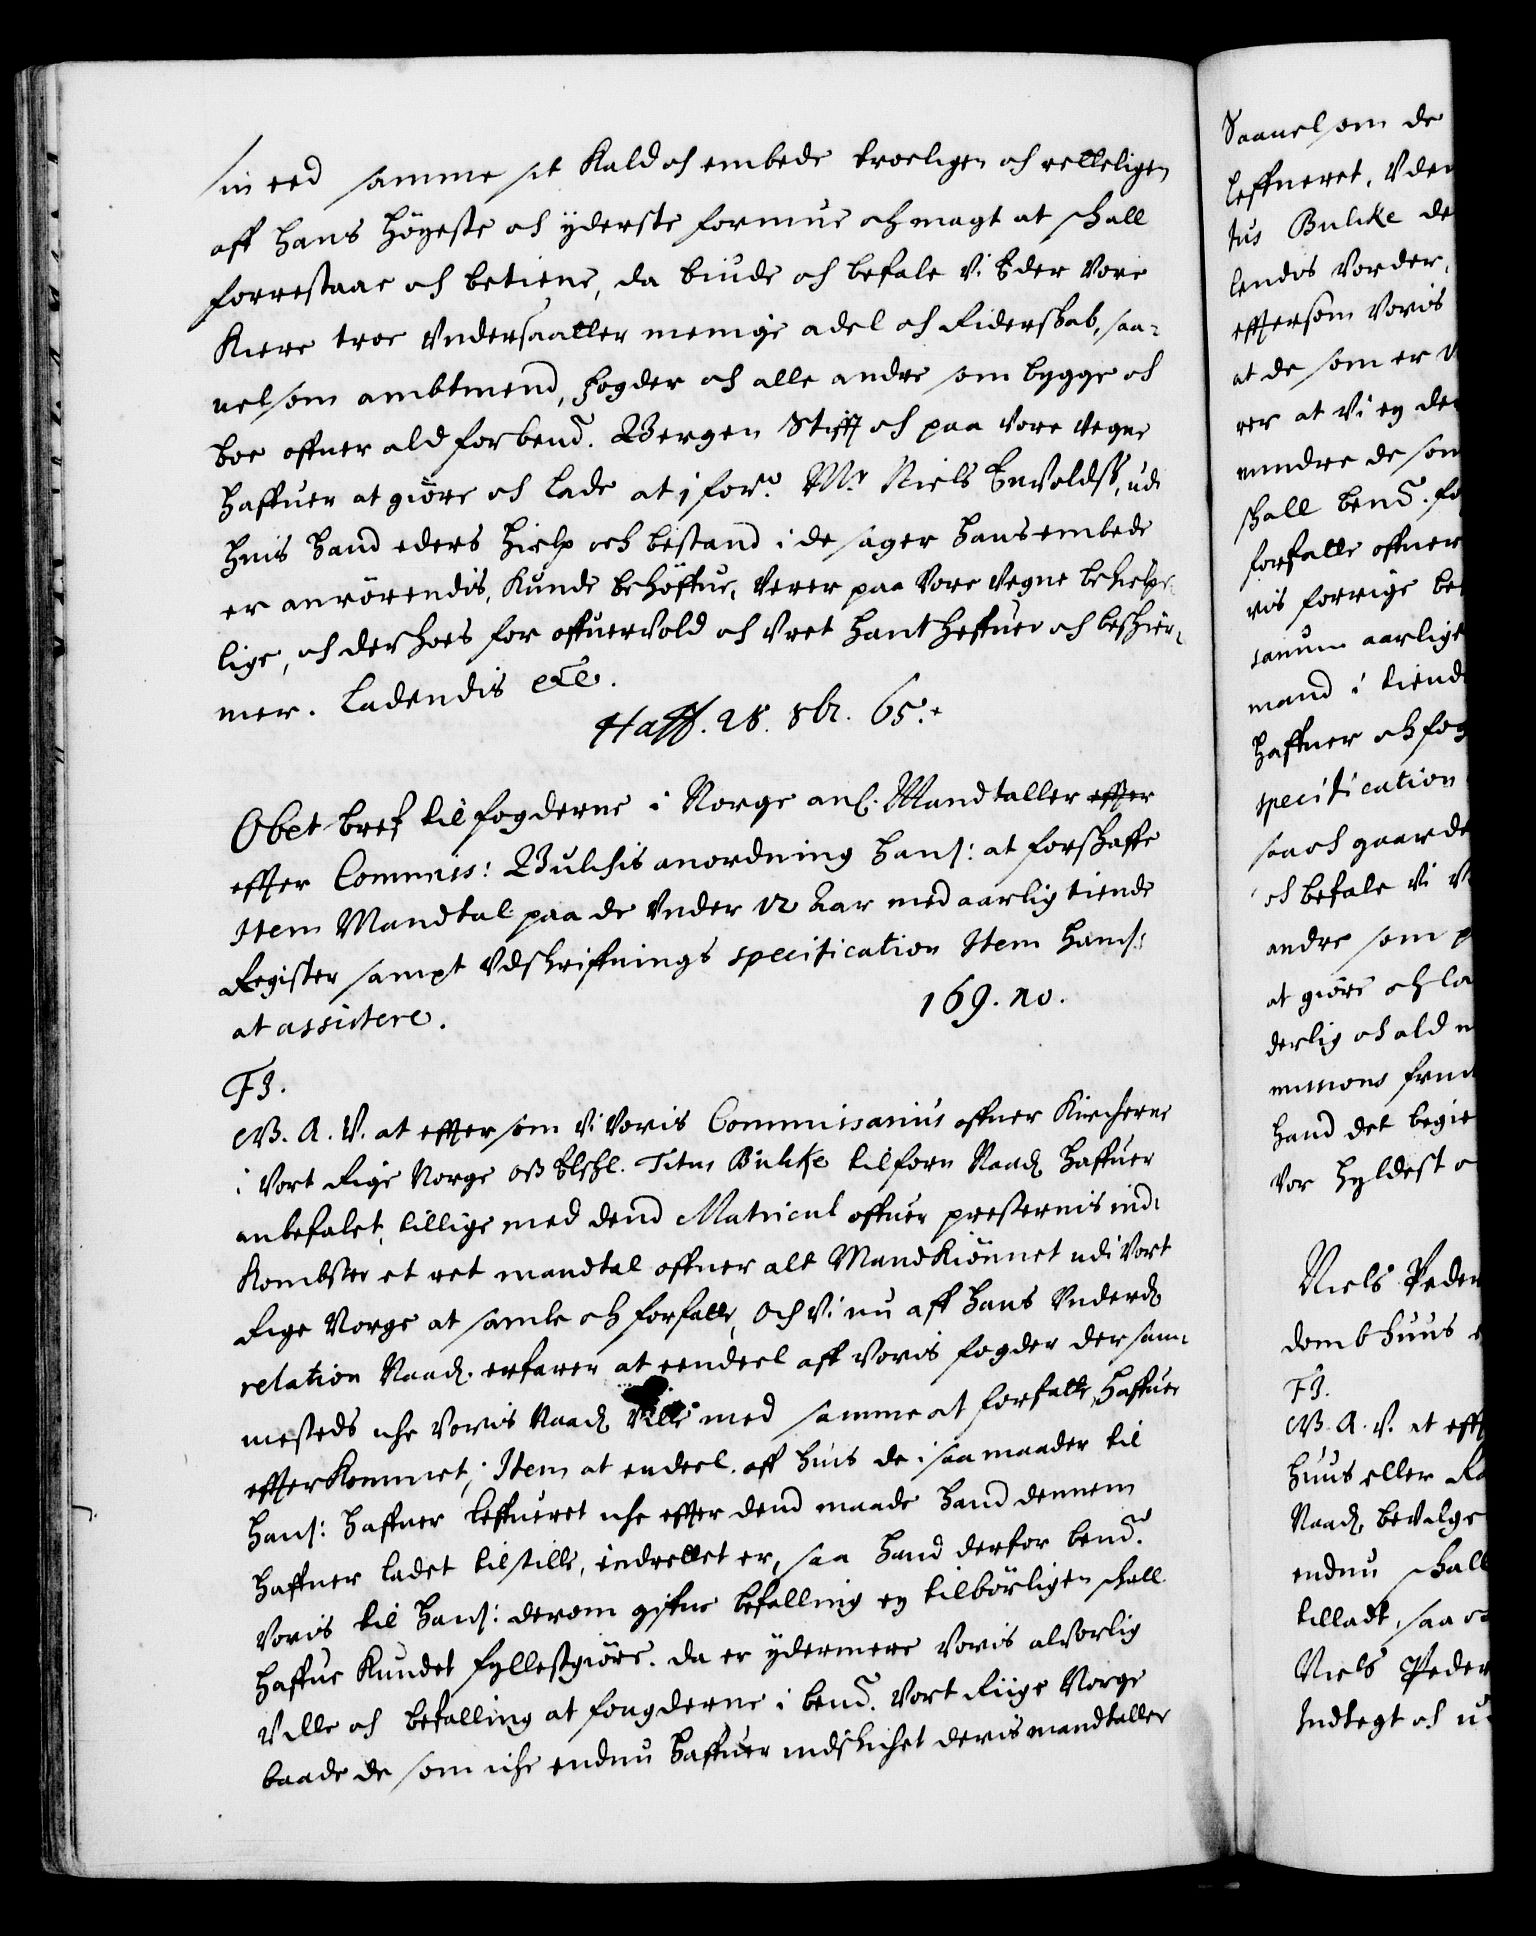 sin eed samme sit Kald och embede troeligen och retteligen
aff hans Högeste och yderste formue och magt at schall
forrestaae och betiene, da biude och befale Vi Eder Vore
Kiere troe Vndersaatter menige adel och Riderskab, saa-
uelsom ambtmend, fogder och alle andre som bygge och
boe offuer ald forbend. Bergen Stifft och paa Vore Vegne
haffuer at giöre och lade at i forn. Mr. Niels Enuoldsß, udi
huis hand eders hielp och bestand i de sager hans embede
er anrörendis, Kunde behöffue, Verer paa Vore Vegne behielpe-
lige, och der hoes for offueruold och Vret hantheffuer och beskier-
mer. Ladendis etc.
Haff. 28. 8br. 65.
Obet bref til fogderne i Norge anl. Mandtaller effter
effter Commis: Bulchis anordning hans: at forskaffe
Item Mandtal paa de Vnder 12 Aar med aarlig tiende
Register sampt Vdskriffnings specification Item hans:
at assistere.
169. no.
F3.
G. A. V. at effter som Vi Voris Commissarius offuer Kircherne
i Vort Rige Norge oß Elskl. Titus Bulche tilforn Naad. haffuer
anbefalet, tillige med dend Matricul offuer presternis ind-
Kombster et ret mandtal offuer alt Mandkiönnet udi Vort
Rige Norge at samle och forfatte, Och Vi nu aff hans Vnderd.
relation Naad. erfarer at eendeel aff Voris fogder dersam-
mesteds iche Voris Naad. Ville med samme at forfatte, haffuer
effterkommet, Item at endeel. aff huis de i saa maader til
hans: haffuer leffueret iche effter dend maade hand dennem
haffuer ladet tilstille, indrettet er, saa hand derfor bend.
Voris til hans: derom gifne befalling ey tilbörligen schall
haffue Kundet fyllestgiöre. da er ydermere Voris aluorlig
Ville och befalling at fougderne i bend. Vort Riige Norge
baade de som iche endnu haffuer indskichet deris mandtaller
Saauelsom de
leffueret, Vden
tus Bulcke de
lendis Vorder,
efftersom Voris
at de som er
rer at Vi ey de
mindre de som
schall bend. fo
forfatte offuer
ris forrige be
sarium aarlige
mand i tiende
haffuer och fog
specification
saa och gaarde
och befale Vi V
andre som p
at giöre och la
derlig och ald
missions
hand det begie
Vor hyldest o
Niels Peder
domb huus
F3.
G. A. V. at eff
huus eller Ra
Naad. beuilge
endnu schall
tilladt, saa o
Niels Peder
Indtegt och u